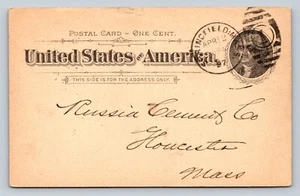 POSTAL CARD – ONE CENT.
United States of America.
THIS SIDE IS FOR THE ADDRESS ONLY.
Russia Cement Co
Gloucester
Mass